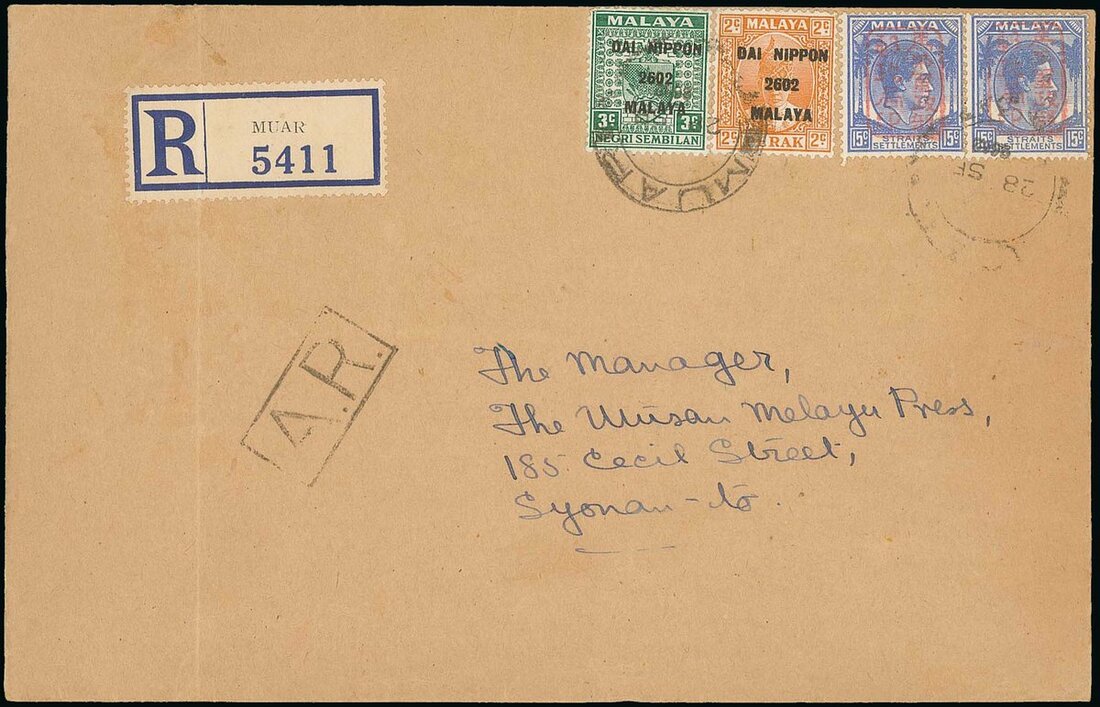 R MUAR
5411
MALAYA
DAI NIPPON
2602
MALAYA
3c 3c
NEGRI SEMBILAN
MALAYA
2c 2c
DAI NIPPON
2602
MALAYA
2c RAK 2c
MALAYA
15c STRAITS SETTLEMENTS 15c
MALAYA
15c STRAITS SETTLEMENTS 15c
MUAR
28 SE
A.R.
The Manager,
The Utusan Melayu Press,
185 Cecil Street,
Syonan-to.